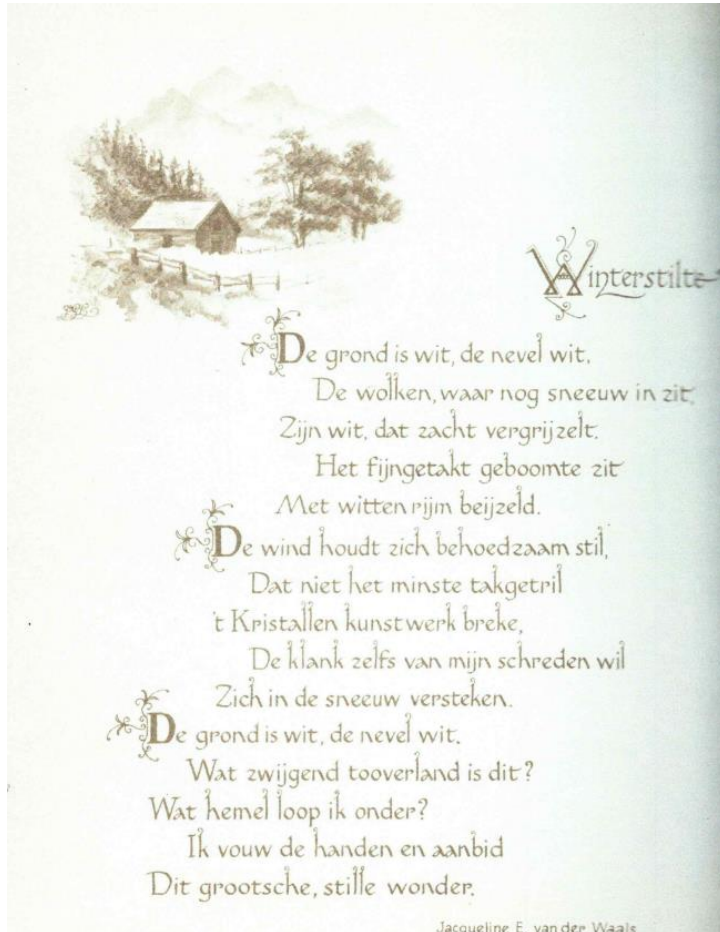 Winterstilte
De grond is wit, de nevel wit,
De wolken, waar nog sneeuw in zit,
Zijn wit, dat zacht vergrijzelt.
Het fijngetakt geboomte zit
Met witten rijm beijzeld.
De wind houdt zich behoedzaam stil,
Dat niet het minste takgetril
't Kristallen kunstwerk breke,
De klank zelfs van mijn schreden wil
Zich in de sneeuw versteken.
De grond is wit, de nevel wit,
Wat zwijgend tooverland is dit?
Wat hemel loop ik onder?
Ik vouw de handen en aanbid
Dit grootsche, stille wonder.
Jacqueline E. van der Waals